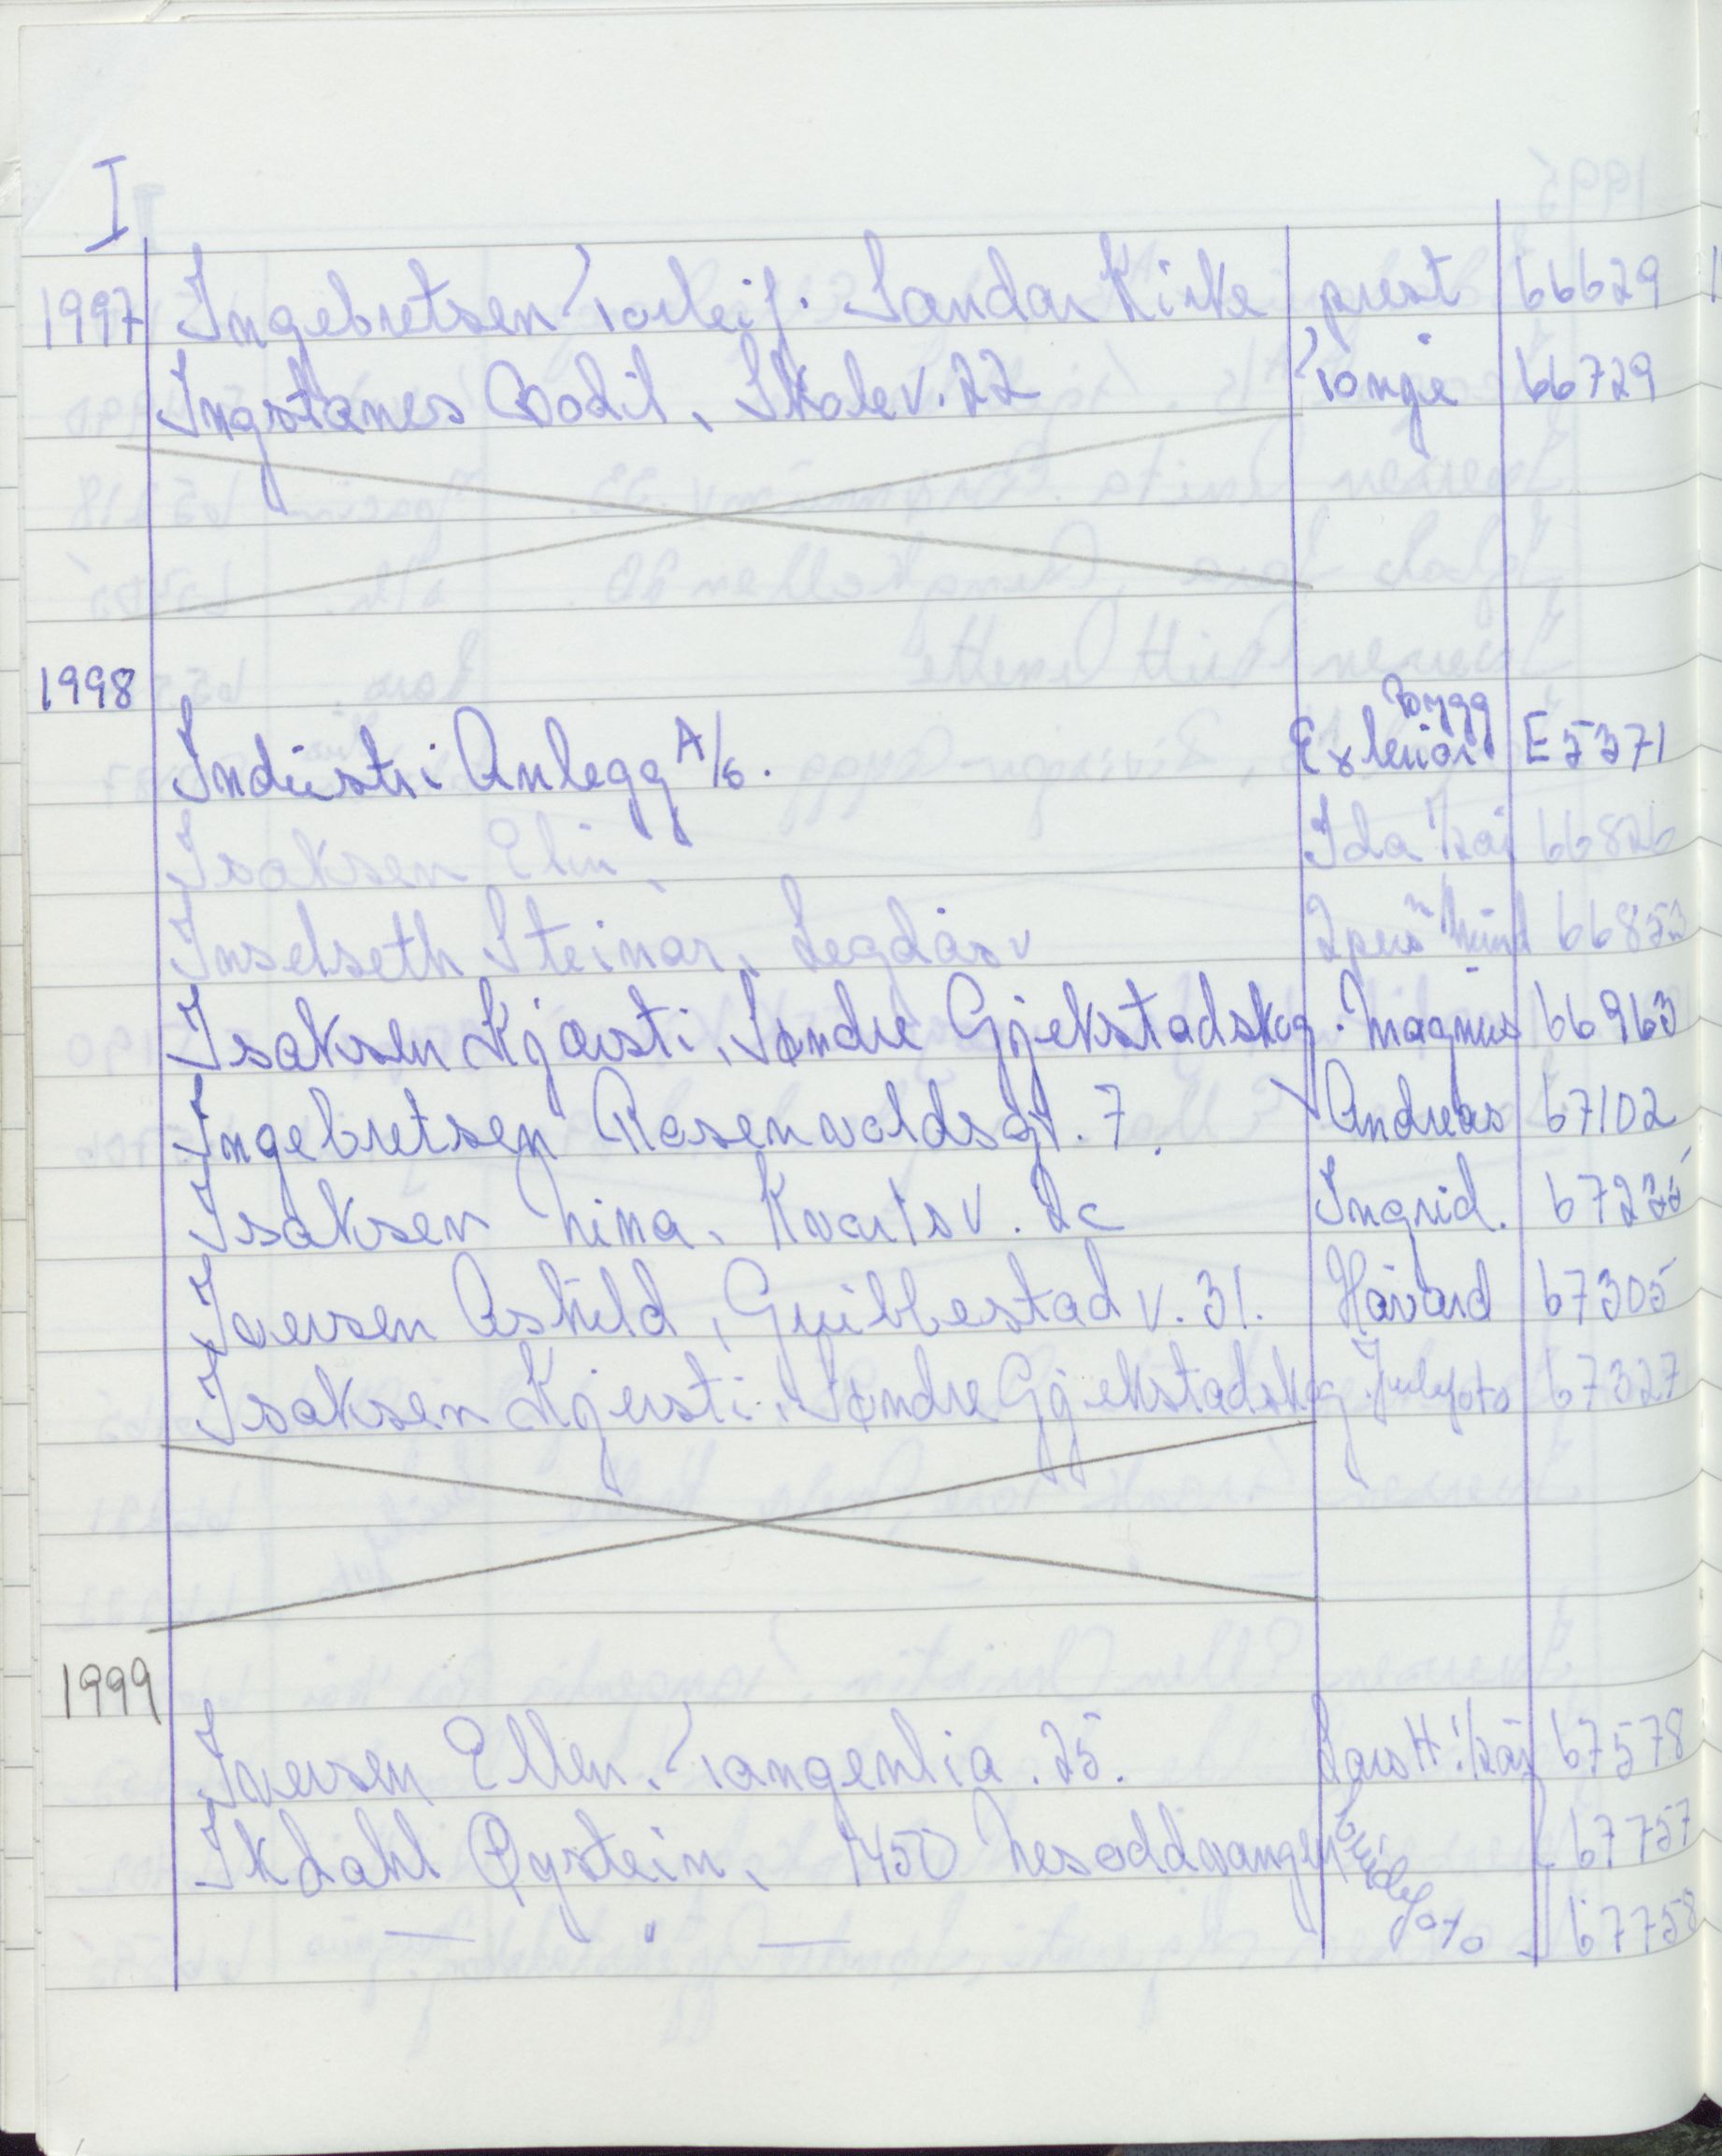 I
1997 Ingebretsen Torleif. Sandar Kirke prest 66629
Ingstanes Bodil, Skolev. 22 Tonje 66729
1998
Industri Anlegg A/S. Bygg Exteriør E5371
Isaksen Elin, Ida 1/2 år 66826
Inselseth Steinar, Legdäsv 2 pers 66853
Isaksen Kjærsti, Søndre Gjekstadskog. Magnus 66963
Ingebretsen Rosenvoldsgt. 7. Andreas 67102
Isaksen Nina, Kvartsv. 2c Ingrid. 67235
Iversen Askild, Guibbestad v. 31. Håvard 67305
Isaksen Kjersti, Søndre Gjekstadskog. Julefoto 67327
1999
Iversen Ellen. Tangenlia. 25. Lars H 1/2 år 67578
Ikdahl Øystein, 1450 Nesoddtangen brudefoto 67757
— " — 67758